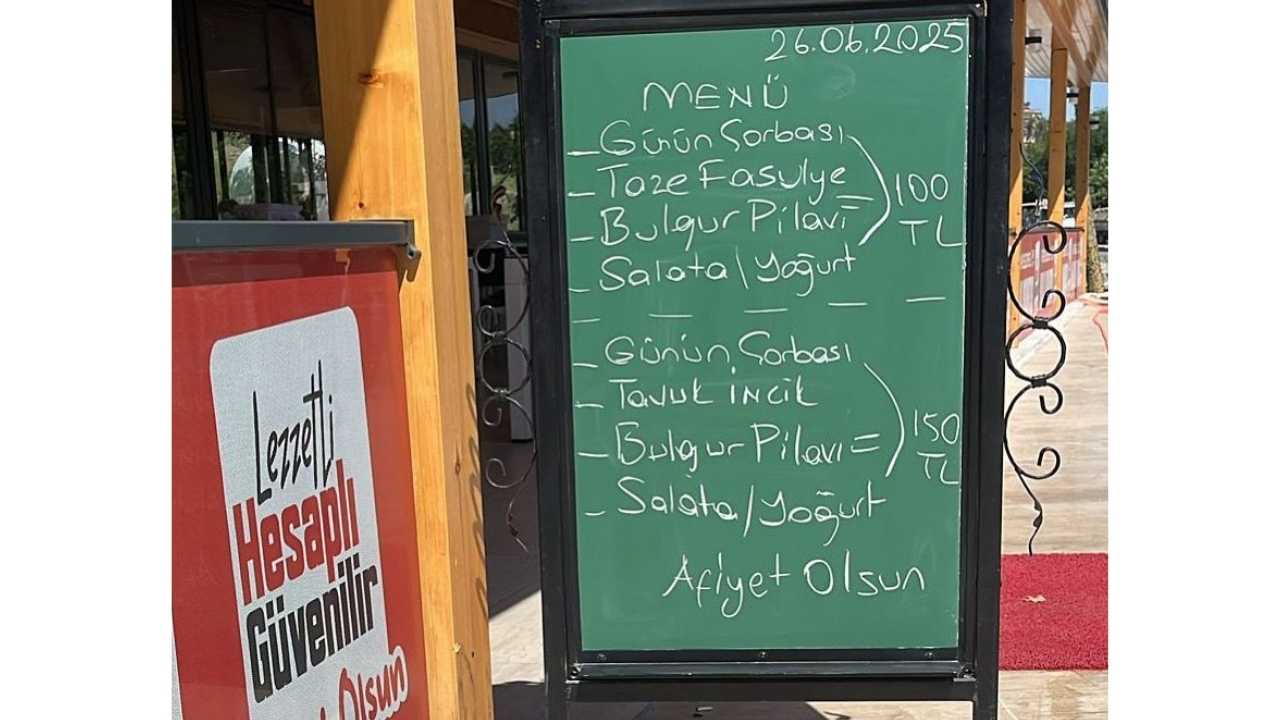 26.06.2025
MENÜ
- Günün Çorbası
- Taze Fasulye
- Bulgur Pilavı = 100 TL
- Salata / Yoğurt
- - - - -
- Günün Çorbası
- Tavuk İncik
- Bulgur Pilavı = 150 TL
- Salata / Yoğurt
Afiyet Olsun
Lezzetli
Hesaplı
Güvenilir
Olsun